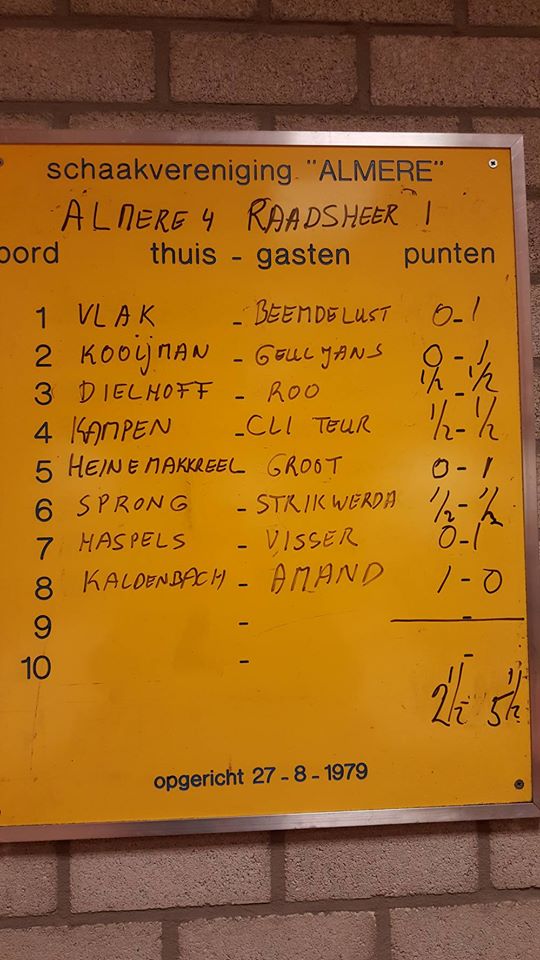 schaakvereniging "ALMERE"
ALMERE 4 RAADSHEER 1
oord thuis - gasten punten
1 VLAK - BEEMDELUST 0-1
2 KOOIJMAN - GEULJANS 0-1
3 DIELHOFF - ROO 1/2-1/2
4 KAMPEN - CLITEUR 1/2-1/2
5 HEINEMAKKREEL GROOT 0-1
6 SPRONG - STRIKWERDA 1/2-1/2
7 HASPELS - VISSER 0-1
8 KALDENBACH - AMAND 1-0
9 - -
10 - -
2 1/2 5 1/2
opgericht 27-8-1979